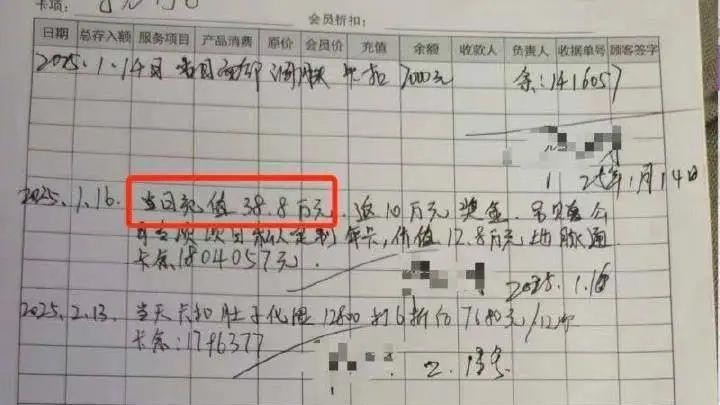 卡项:
会员折扣:
日期 总存入额 服务项目 产品消费 原价 会员价 充值 余额 收款人 负责人 收据单号 顾客签字
2025.1.14日 当日 卡扣 7000元 余:1416057
25年1月14日
2025.1.16. 当日充值38.8万元.返10万元奖金.另赠
项目私人定制年卡,价值12.8万元 通
卡余1804057元.
2025.1.16
2025.2.13. 当天卡扣肚子化 12800打6折后7680元/12
卡余:1796377
2.13